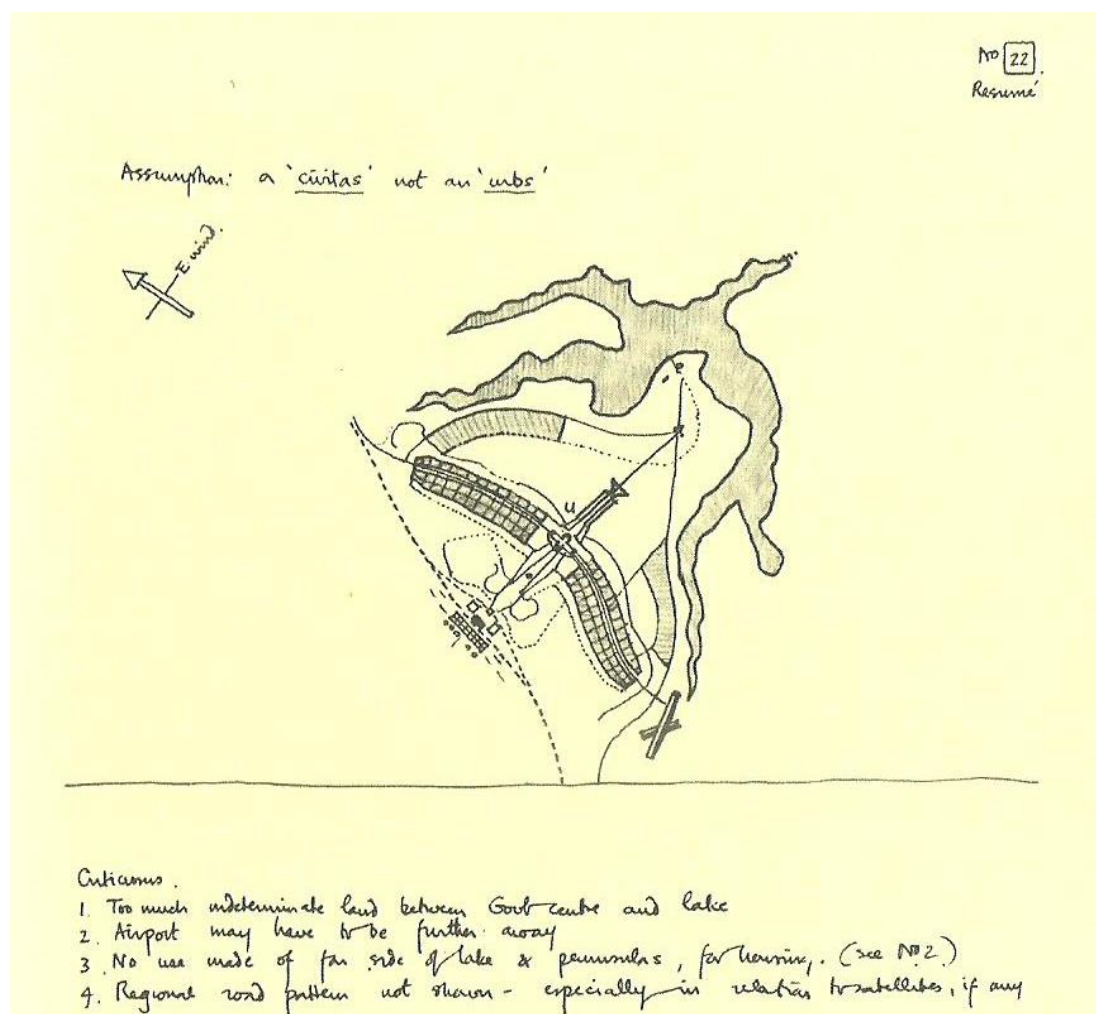 No 22.
Resumé
Assumption: a 'civitas' not an 'urbs'
E. wind.
u
Criticisms.
1. Too much indeterminate land between Govt centre and lake
2. Airport may have to be further away
3. No use made of far side of lake & peninsulas, for housing. (see No 2.)
4. Regional road pattern not shown - especially in relation to satellites, if any